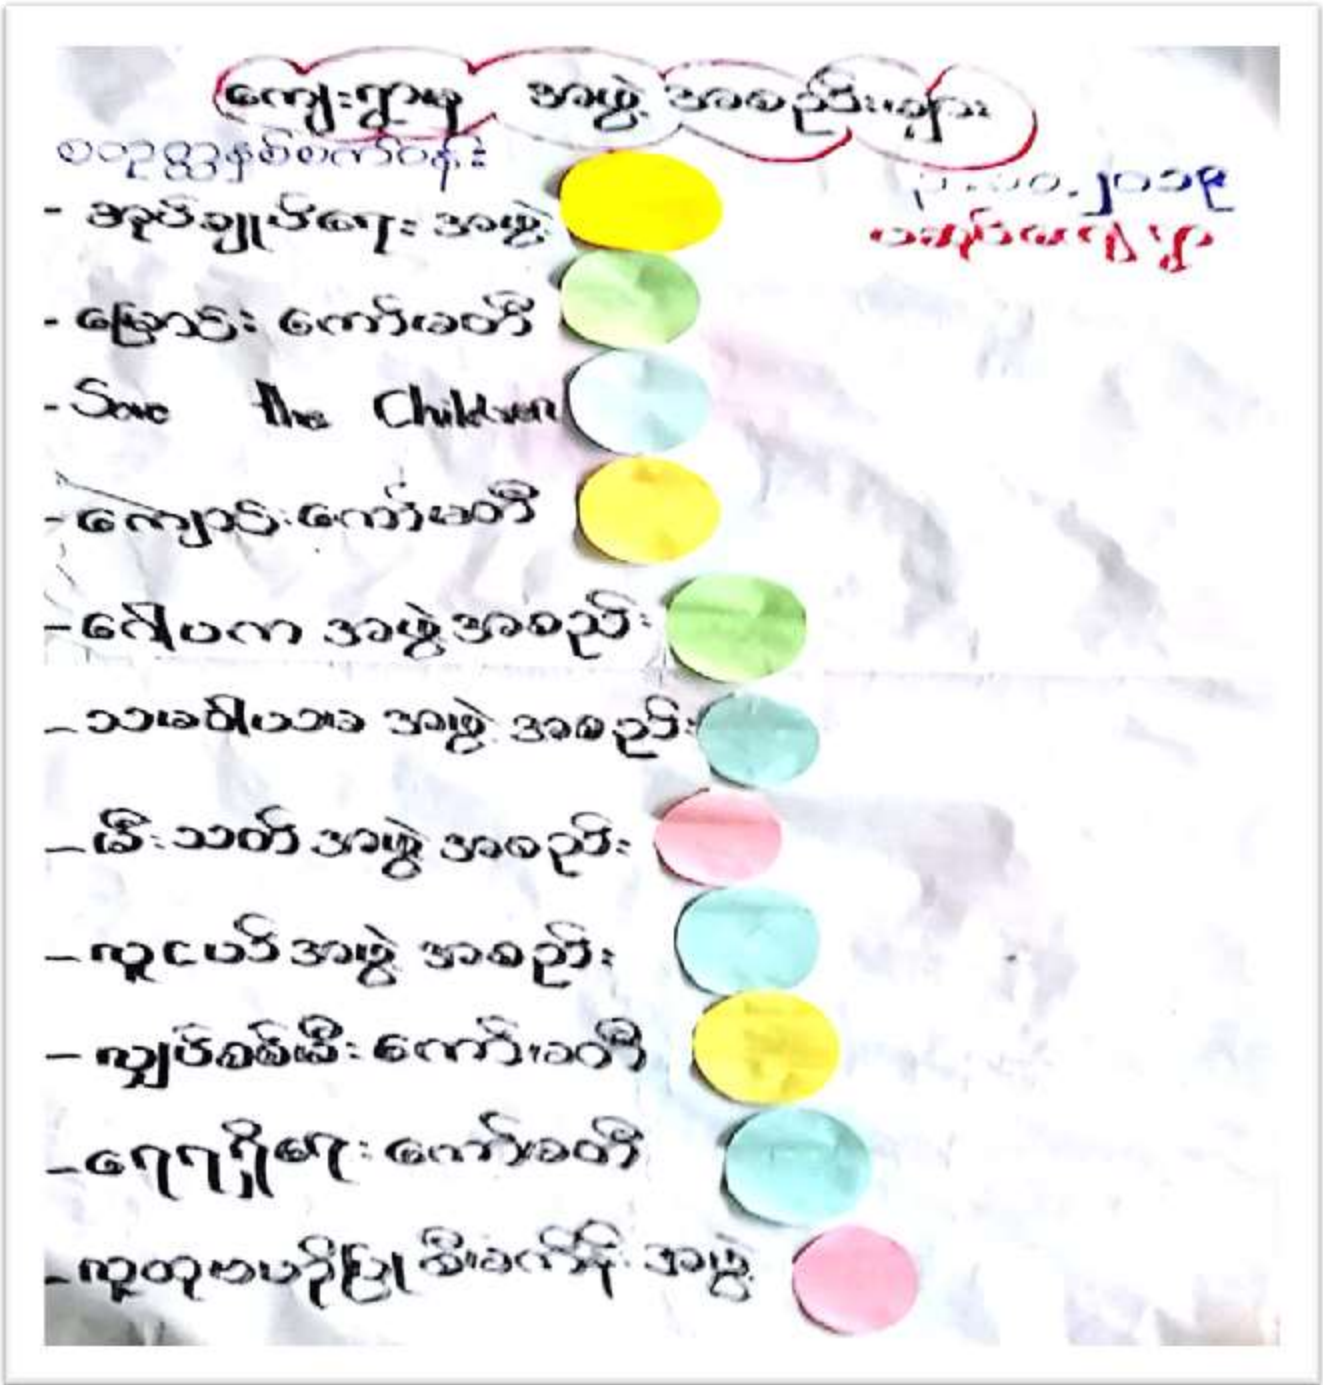 ကျေးရွာမှ အဖွဲ့ အစည်းများ
စတုတ္ထနှစ်စက်ဝန်း
၃.၁၀.၂၀၁၉
- အုပ်ချုပ်ရေး အဖွဲ့
- မြောင်း ကော်မတီ
- Save the Children
- ကျောင်းကော်မတီ
- ဂေါပက အဖွဲ့အစည်း
- သမဝါယမ အဖွဲ့ အစည်း
- မီးသတ် အဖွဲ့ အစည်း
- လူငယ် အဖွဲ့ အစည်း
- လျှပ်စစ်မီး ကော်မတီ
- ရေရရှိရေး ကော်မတီ
- လူထုဗဟိုပြု စီမံကိန်း အဖွဲ့